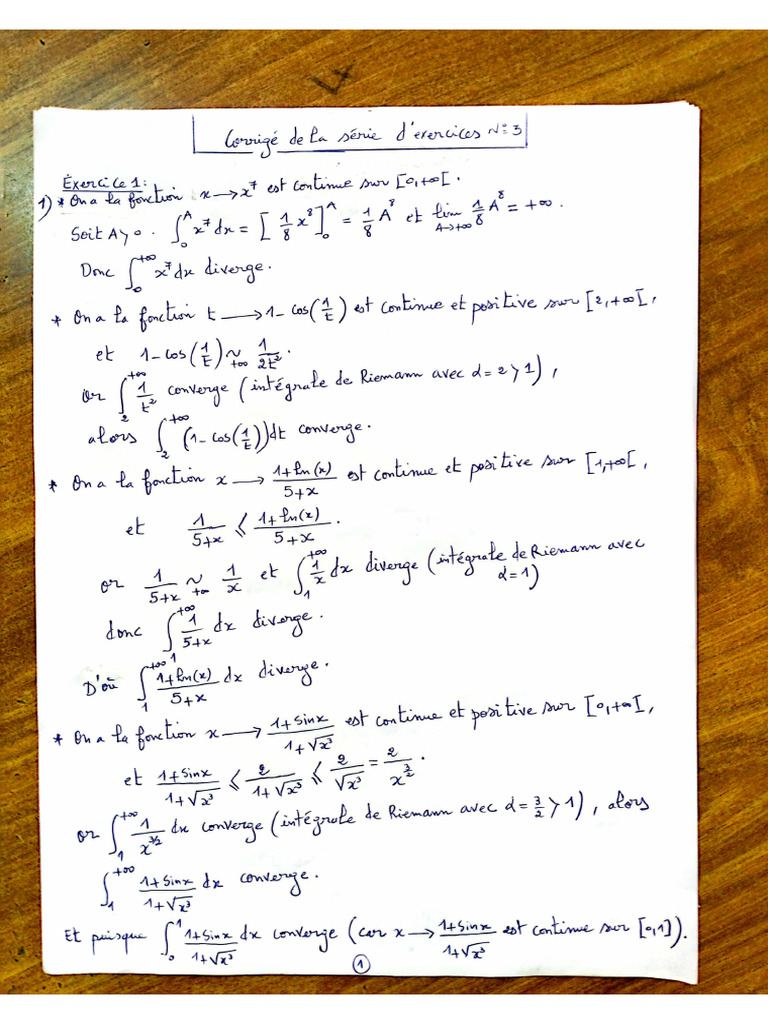 Corrigé de la série d'exercices N° 3
Exercice 1:
1) * On a la fonction x → x⁷ est continue sur [0,+∞[.
Soit A > 0. ∫₀^A x⁷dx = [1/8 x⁸]₀^A = 1/8 A⁸ et lim_{A→+∞} 1/8 A⁸ = +∞.
Donc ∫₀^{+∞} x⁷dx diverge.
* On a la fonction t → 1-cos(1/t) est continue et positive sur [2,+∞[,
et 1-cos(1/t) ~_{+∞} 1/2t².
or ∫₂^{+∞} 1/t² converge (intégrale de Riemann avec α=2>1),
alors ∫₂^{+∞} (1-cos(1/t))dt converge.
* On a la fonction x → (1+ln(x))/(5+x) est continue et positive sur [1,+∞[,
et 1/(5+x) ≤ (1+ln(x))/(5+x).
or 1/(5+x) ~_{+∞} 1/x et ∫₁^{+∞} 1/x dx diverge (intégrale de Riemann avec
α=1)
donc ∫₁^{+∞} 1/(5+x) dx diverge.
D'où ∫₁^{+∞} (1+ln(x))/(5+x) dx diverge.
* On a la fonction x → (1+sinx)/(1+√x³) est continue et positive sur [0,+∞[,
et (1+sinx)/(1+√x³) ≤ 2/(1+√x³) ≤ 2/√x³ = 2/x^{3/2}.
or ∫₁^{+∞} 1/x^{3/2} dx converge (intégrale de Riemann avec α=3/2>1), alors
∫₁^{+∞} (1+sinx)/(1+√x³) dx converge.
Et puisque ∫₀^1 (1+sinx)/(1+√x³) dx converge (car x → (1+sinx)/(1+√x³) est continue sur [0,1]).
1